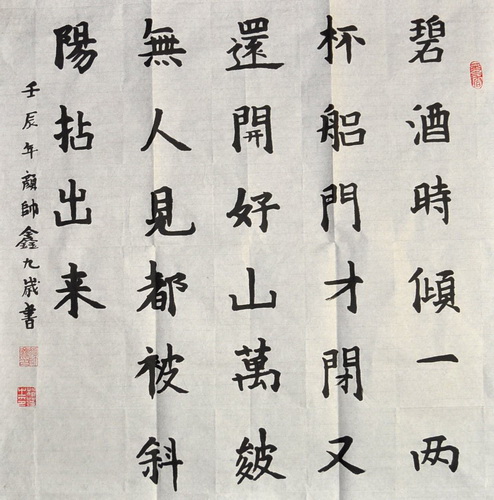 碧酒時傾一两
杯船門才閉又
還開好山萬皴
無人見都被斜
陽拈出来
壬辰年顏帥鑫九歲書